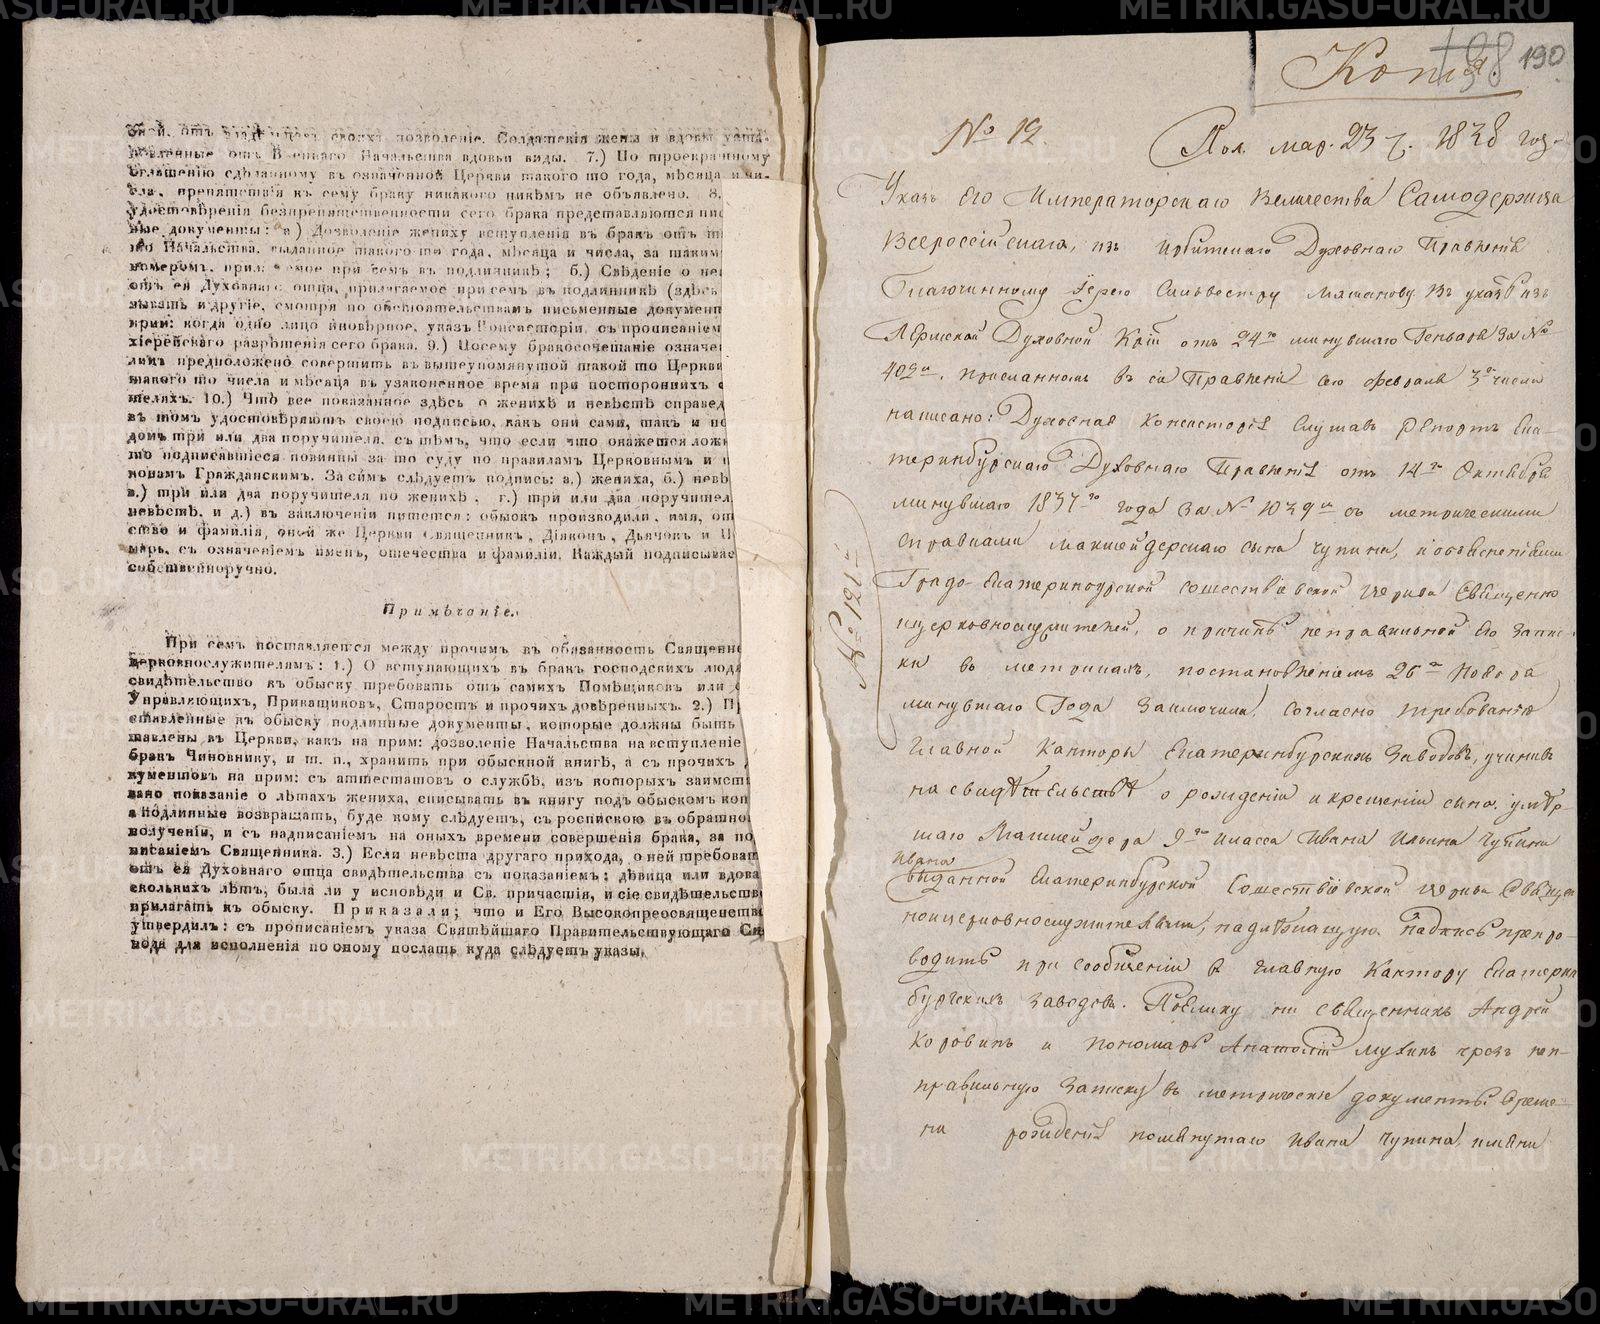 своихъ позволеніе. Солдатскія жены и вдовы
отъ Военнаго Начальства вдовьи виды. 7.) По троекратному
оглашенію сдѣланному въ означенной Церкви такого то года, мѣсяца и чи-
сла, препятствія къ сему браку никакого никѣмъ не объявлено. 8.
удостовѣренія безпрепятственности сего брака представляются пис
ные документы: а) Дозволеніе жениху вступленія въ бракъ отъ
то Начальства, выданное такого то года, мѣсяца и числа, за таким
номеромъ, прилагаемое при семъ въ подлинникѣ; б.) Свѣденіе о не
отъ ея Духовнаго отца, прилагаемое при семъ въ подлинникѣ (здѣсь
зывать и другіе, смотря по обстоятельствамъ письменные документ
прим: когда одно лицо иновѣрное, указъ Консисторіи съ прописаніем
хіерейскаго разрѣшенія сего брака. 9.) Посему бракосочетаніе означе
лицъ предположено совершить въ вышеупомянутой такой то Церкви
такого то числа и мѣсяца въ узаконенное время при постороннихъ с
теляхъ. 10.) Что все показанное здѣсь о женихѣ и невѣстѣ справед
въ томъ удостовѣряютъ своею подписью, какъ они сами, такъ и по
дому три или два поручителя, съ тѣмъ, что если что окажется лож
то подписавшіеся повинны за то суду по правиламъ Церковнымъ и
конамъ Гражданскимъ. За симъ слѣдуетъ подпись: а.) жениха, б.) невѣ
в.) три или два поручителя по женихѣ, г.) три или два поручител
невѣстѣ, и д.) въ заключеніи пишется: обыскъ производили, имя, от
ство и фамилія, оной же Церкви Священникъ, Діаконъ, Дьячокъ и П
марь, съ означеніемъ имен, отечества и фамиліи. Каждый подписывае
собственноручно.
Примѣчаніе.
При семъ поставляется между прочимъ въ обязанность Священно
церковнослужителямъ: 1.) О вступающихъ въ бракъ господскихъ людя
свидѣтельство къ обыску требовать отъ самихъ Помѣщиковъ или
Управляющихъ, Прикащиковъ, Старостъ и прочихъ довѣренныхъ. 2.) Пр
ставленные къ обыску подлинные документы, которые должны быть
тавлены въ Церкви, какъ на прим: дозволеніе Начальства на вступленіе
бракъ Чиновнику, и т. п., хранить при обыскной книгѣ, а съ прочихъ
кументовъ на прим: съ аттестатовъ о службѣ, изъ которыхъ заимств
вано показаніе о лѣтахъ жениха, списывать въ книгу подъ обыскомъ коп
а подлинные возвращать, буде кому слѣдуетъ, съ роспискою въ обратно
полученіи, и съ надписаніемъ на оныхъ времени совершенія брака, за по
писаніемъ Священника. 3.) Если невѣста другаго прихода, о ней требоват
отъ ея Духовнаго отца свидѣтельства съ показаніемъ; дѣвица или вдова
сколькихъ лѣтъ, была ли у исповѣди и Св. причастія, и сіе свидѣтельств
прилагать къ обыску. Приказали; что и Его Высокопреосвященств
утвердилъ: съ прописаніемъ указа Святѣйшаго Правительствующаго Си
нода для исполненія по оному послать куда слѣдуетъ указы.
Копія.
190
№ 12. Пол. мар. 23 ч. 1838 года
Указъ Его Императорскаго Величества Самодержца
Всероссійскаго, изъ Ирбитскаго Духовнаго Правленія
Благочинному Іерею Сильвестру Ляпанову Въ указѣ изъ
Пермской Духовной Кріи отъ 24го минувшаго Генваря за №
402м, присланномъ въ сіе Правленіе сего февраля 3го числа
написано: Духовная Консисторія слушавъ репортъ Ека-
теринбурскаго Духовнаго Правленія отъ 14го Октября
минувшаго 1837го года за № 1039м съ метрическими
справками маншейдерскаго сына Чупина, и объясненіями
Градо-Екатеринбурской Сошествіевской церкви Священно
церковнослужителей, о причинѣ неправильной его запис-
ки въ метрикахъ, постановленіемъ 26го Ноября
минувшаго Года Заключила, согласно требованія
Главной Канторы Екатеринбурскихъ Заводовъ, учинивъ
на свидѣтельствѣ о рожденіи и крещеніи сына умер-
шаго Маншейдера 9го класса Ивана Ильина Чупина
Ивана
выданной Екатеринбурской Сошествіевской церкви Священ
ноцерковнослужителями, надлежащую надпись препро-
водить при сообщеніи въ главную Кантору Екатерин
бургскихъ заводовъ. Поелику же священникъ Андрей
Коровинъ и пономарь Анатолій Мухинъ чрезъ неп-
правильную Записку въ метрическіе документы време-
ни рожденія помянутаго Ивана Чупина, имени
№ 121